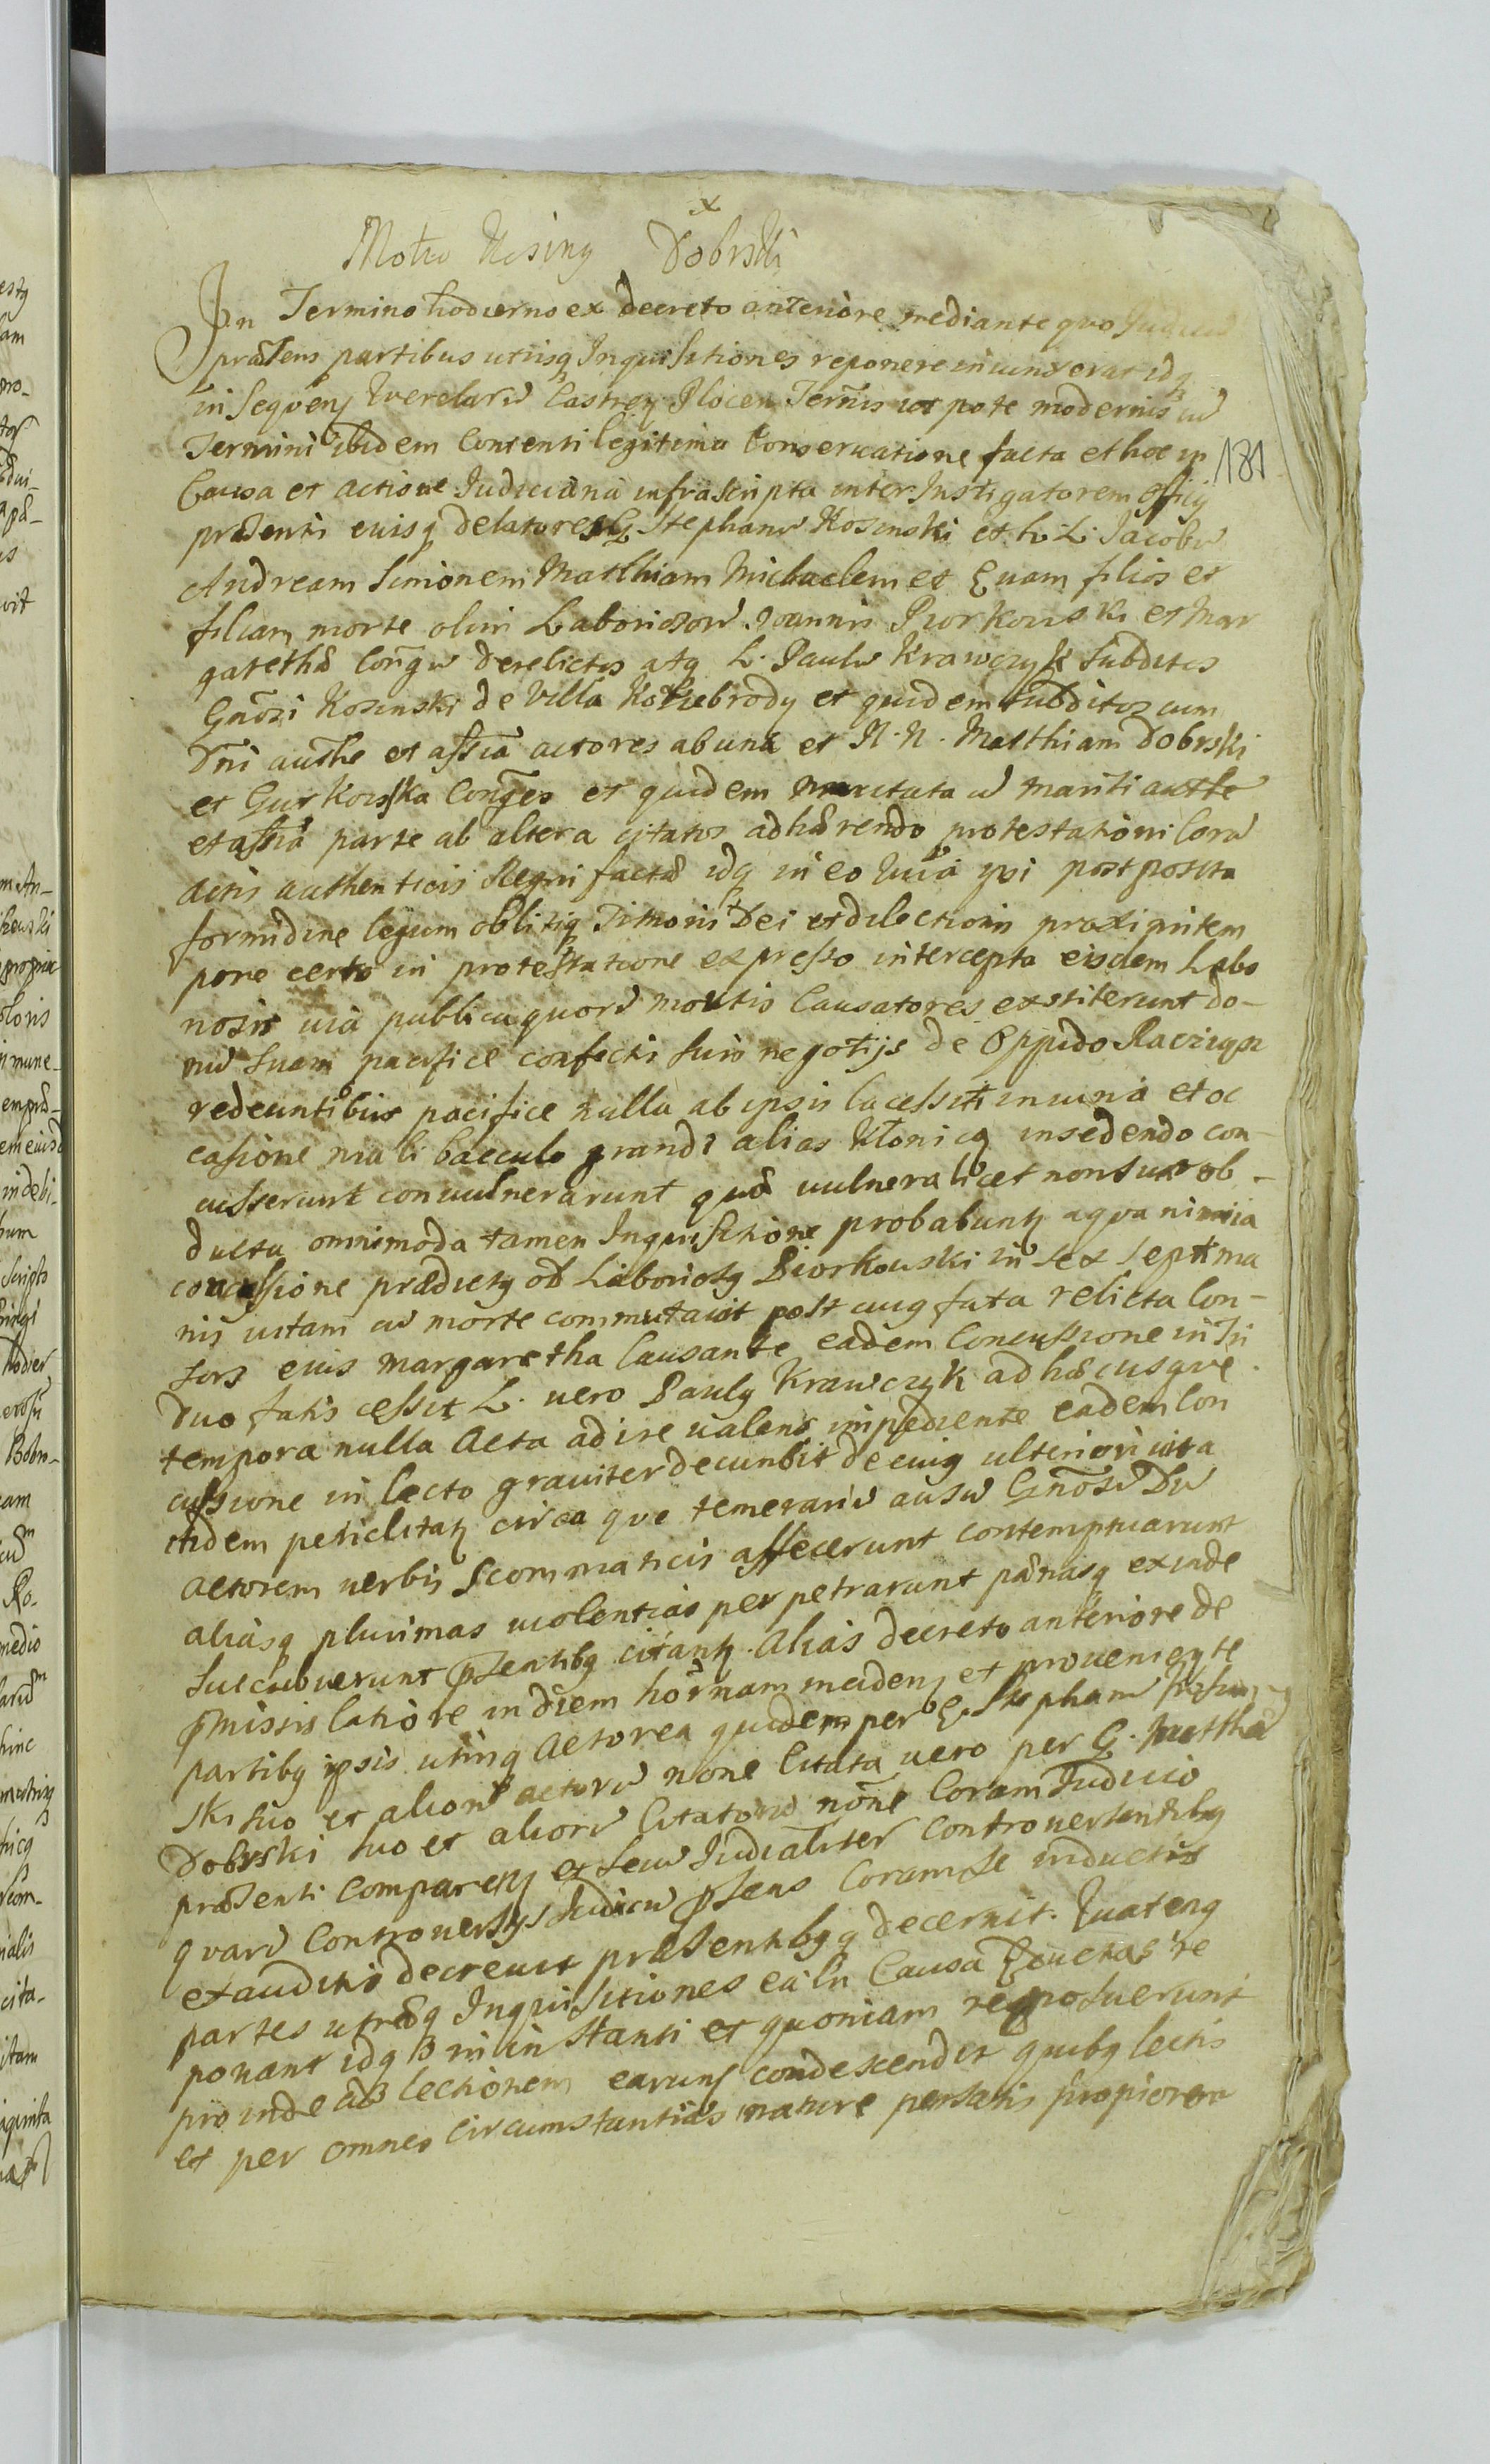 x
Dobrski
In Termino hodierno ex decreto anteriore mediante quo
præsens partibus utrisq Inquisitiones reponere iniunxerat idq
in Seqven Querelarũ Castren Plocen Termis ut pote modernis
Termini ibidem Contenti legitima Conservatione facta et hoc in
181
Causa et actione Judiciaria infrascripta inter Instigatorem Officij
præsentis eiusq delatores G. Stephanũ Kosinski et L. Jacobũ
Andream Simonem Matthiam Michaelem et Evam filios et
filiam morte olim Laboriosorũ Joannis Piorkowski et Mar
garethæ Congũ derelictos atq L. Paulũ Krawczyk Subditos
Gnosi Kosinski de Villa et quidem Subditos cum
Dni authe et assia actores ab una et N. N. Matthiam Dobrski
et Gurkowska Conges et quidem maritata cũ mariti authe
et assia parte ab altera citatos adhærendo protestationi Corã
Actis authenticis Regni factæ idq in eo quia ipsi postposita
formidine legum oblitiq Timoris Dei et dilectionis proximi item
pone certo in protestatione expresso intercepta eisdem Labo
riosis uia publica quorũ mortis Causatores exstiterunt do-
mũ suam pacifice confectis suis negotijs de Oppido Raciąsz
redeuntibus pacifice nulla ab ipsis lacessiti iniuria et oc
casione mali bacculo grandi alias Kłonicą insedendo con-
cusserunt conuulnerarunt quæ uulnera licet non sunt ob-
ducta omnimoda tamen Inquisitione probabunt a qva nimia
concussione prædictq olĩ Laboriosq Piorkowski in sex septima
nis uitam cũ morte commutauit post cuiq fata relicta Con-
sors eius Margaretha Causante eadem Concussione in Tri
duo fatis cessit L. uero Paulq Krawczyk ad hæcusqve
tempora nulla Acta adire ualens impediente eadem Con
cussione in lecto grauiter decunbit de cuiq ulteriori uita
itidem periclitat circa qve temerariũ ausũ Gnosũ Dũ
Actorem uerbis Scommaticis affecerunt contemptuarunt
aliasq plurimas uiolentias perpetrarunt pænasq exinde
succubuerunt psentibq citant. Alias decreto anteriore de
pmissis latiore in diem hodrnam inciden et proueniente
partibq ipsis utrinq Actorea quidem per G. Stephanũ Kosin-
ski suo et aliorũ actorũ none Citata uero per G. Matthiã
Dobrski suo et aliorũ Citatorũ none Coram Judicio
præsenti Comparen et seũ Judialiter Controuersantibq
qvarũ Controuersijs Judiciũ psens Coram se inductis
exauditis decreuit præsentibqq decernit. Quatenq
partes utræq Inquisitiones ea in Causa Eductas re
ponant idq in instanti et quoniam reposuerunt
proinde ad lectionem earun condescendit quibq lectis
et per omnes Circumstantias mature pensatis propiorem